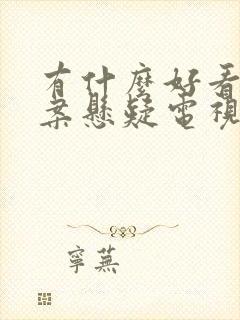 有什麼好看
案懸疑電視
寧蕪